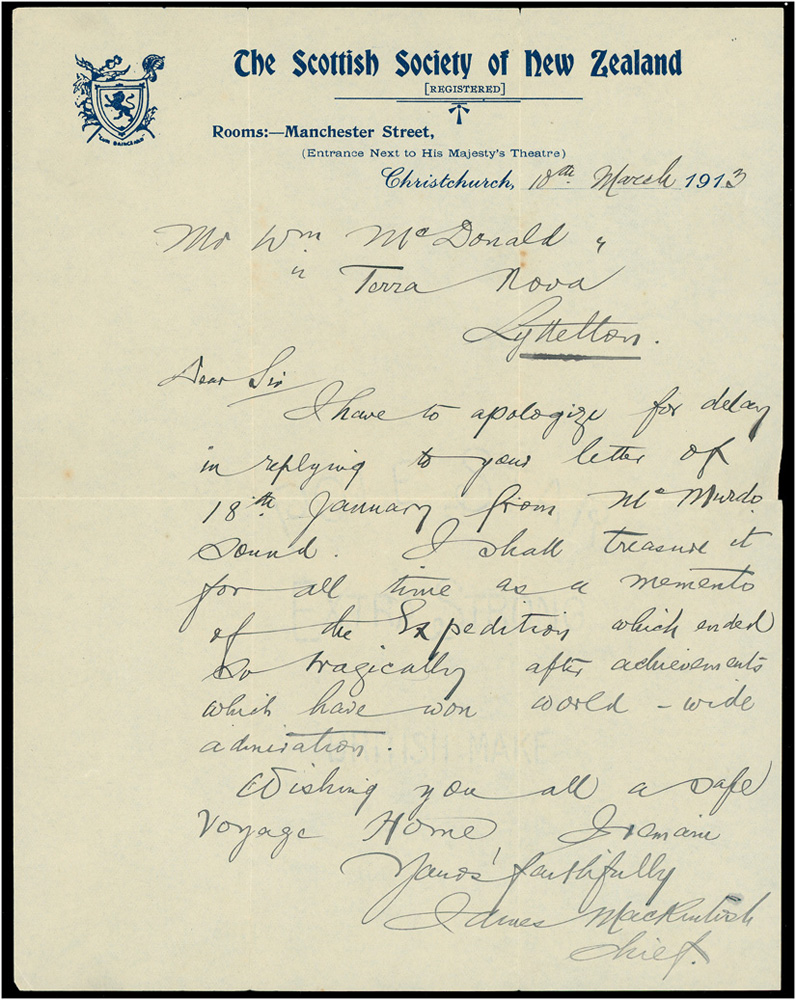 The Scottish Society of New Zealand
[REGISTERED]
Rooms:—Manchester Street,
(Entrance Next to His Majesty's Theatre)
Christchurch, 18th March 1913
Mr Wm McDonald
" Terra Nova
Lyttelton.
Dear Sir
I have to apologize for delay
in replying to your letter of
18th January from McMurdo
Sound. I shall treasure it
for all time as a memento
of the Expedition which ended
so tragically after achievements
which have won world-wide
admiration.
Wishing you all a safe
Voyage Home, I remain
Yours faithfully
James MacKintosh
Chief.
BRITISH MAKE